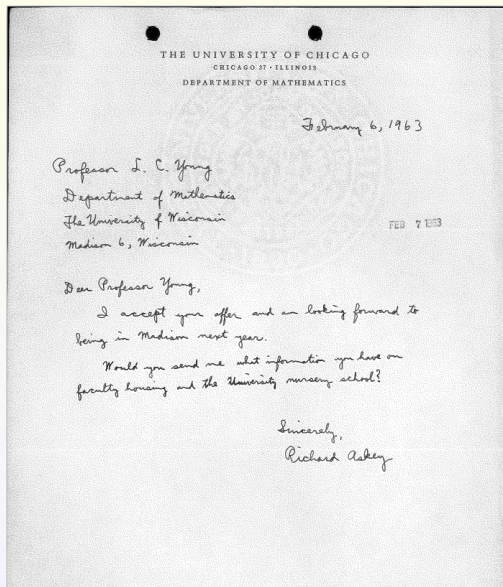 THE UNIVERSITY OF CHICAGO
CHICAGO 37 · ILLINOIS
DEPARTMENT OF MATHEMATICS
February 6, 1963
Professor L. C. Young
Department of Mathematics
The University of Wisconsin
Madison 6, Wisconsin
FEB 7 1963
Dear Professor Young,
I accept your offer and am looking forward to
being in Madison next year.
Would you send me what information you have on
faculty housing and the University nursery school?
Sincerely,
Richard Askey